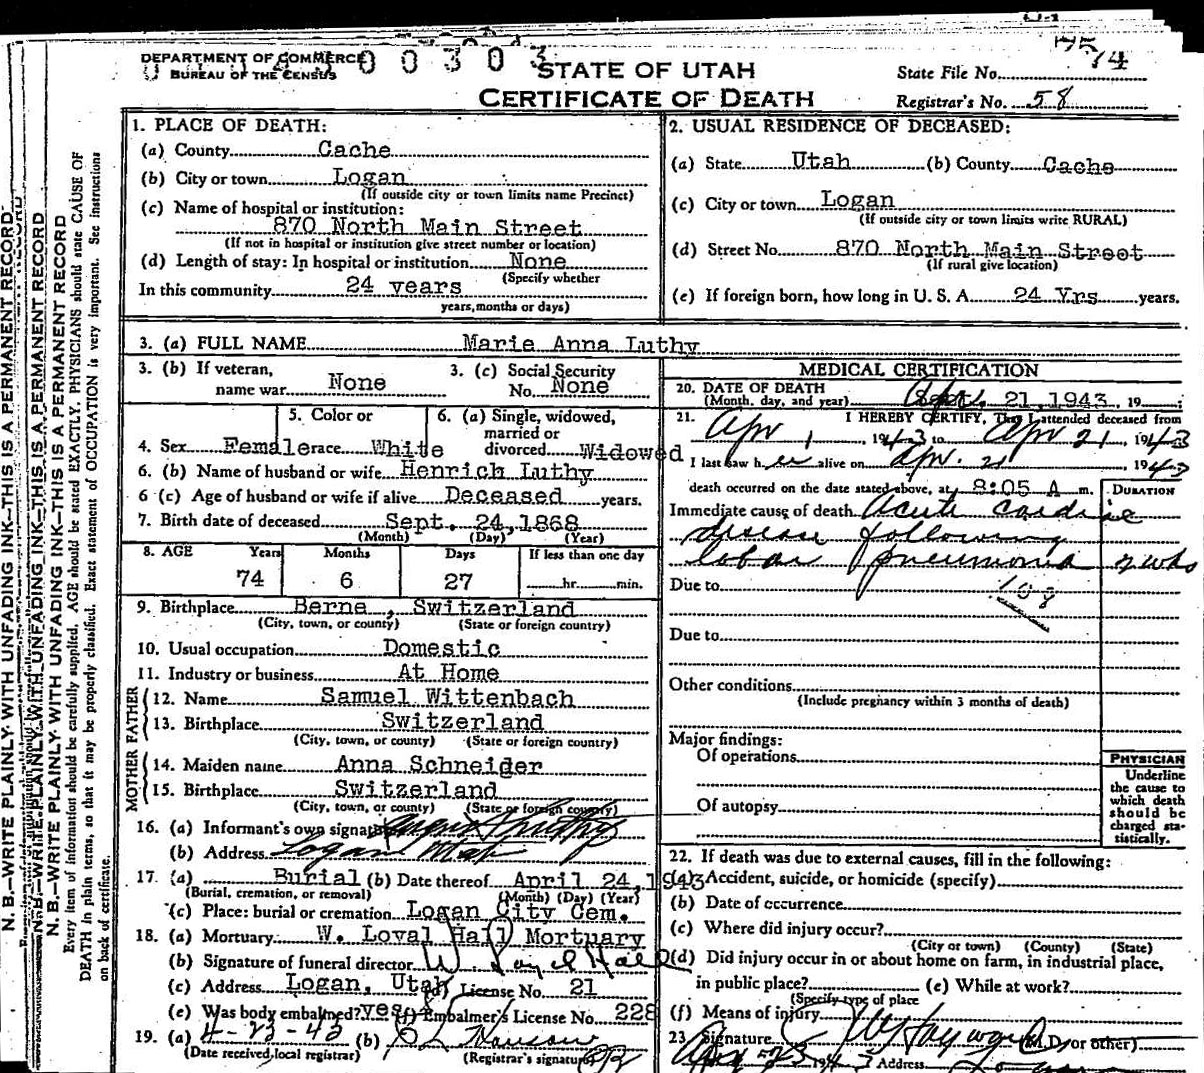 DEPARTMENT OF COMMERCE
BUREAU OF THE CENSUS
0 0 3 0 3
STATE OF UTAH
CERTIFICATE OF DEATH
74
State File No.
Registrar's No. 58
N. B.—WRITE PLAINLY WITH UNFADING INK—THIS IS A PERMANENT RECORD
N. B.—WRITE PLAINLY WITH UNFADING INK—THIS IS A PERMANENT RECORD
N. B.—WRITE PLAINLY WITH UNFADING INK—THIS IS A PERMANENT RECORD
Every item of information should be carefully supplied. AGE should be stated EXACTLY. PHYSICIANS should state CAUSE OF
DEATH in plain terms, so that it may be properly classified. Exact statement of OCCUPATION is very important. See instructions
on back of certificate.
1. PLACE OF DEATH:
(a) County Cache
(b) City or town Logan
(If outside city or town limits name Precinct)
(c) Name of hospital or institution:
870 North Main Street
(If not in hospital or institution give street number or location)
(d) Length of stay: In hospital or institution None
(Specify whether
In this community 24 years
years, months or days)
2. USUAL RESIDENCE OF DECEASED:
(a) State Utah (b) County Cache
(c) City or town Logan
(If outside city or town limits write RURAL)
(d) Street No. 870 North Main Street
(If rural give location)
(e) If foreign born, how long in U. S. A. 24 Yrs years.
3. (a) FULL NAME Marie Anna Luthy
3. (b) If veteran,
name war None
3. (c) Social Security
No. None
4. Sex Female
5. Color or
race White
6. (a) Single, widowed,
married or
divorced Widowed
6. (b) Name of husband or wife Henrich Luthy
6 (c) Age of husband or wife if alive Deceased years.
7. Birth date of deceased Sept. 24, 1868
(Month) (Day) (Year)
8. AGE Years Months Days If less than one day
74 6 27 hr. min.
9. Birthplace Berne, Switzerland
(City, town, or county) (State or foreign country)
10. Usual occupation Domestic
11. Industry or business At Home
FATHER
12. Name Samuel Wittenbach
13. Birthplace Switzerland
(City, town, or county) (State or foreign country)
MOTHER
14. Maiden name Anna Schneider
15. Birthplace Switzerland
(City, town, or county) (State or foreign country)
16. (a) Informant's own signature
(b) Address Logan Utah
17. (a) Burial (b) Date thereof April 24, 1943
(Burial, cremation, or removal) (Month) (Day) (Year)
(c) Place: burial or cremation Logan City Cem.
18. (a) Mortuary W. Loyal Hall Mortuary
(b) Signature of funeral director W. Loyal Hall
(c) Address Logan, Utah (d) License No. 21
(e) Was body embalmed? yes (f) Embalmer's License No. 228
19. (a) 4-23-43 (b)
(Date received local registrar) (Registrar's signature)
MEDICAL CERTIFICATION
20. DATE OF DEATH
(Month, day, and year) Apr. 21, 1943, 19
21. I HEREBY CERTIFY, That I attended deceased from
Apr 1, 1943 to Apr 21, 1943
I last saw her alive on Apr. 21, 1943
death occurred on the date stated above, at 8:05 A m.
DURATION
Immediate cause of death Acute Cardiac
disease following
lobar pneumonia 2 wks
Due to
108
Due to
Other conditions
(Include pregnancy within 3 months of death)
Major findings:
Of operations
Of autopsy
PHYSICIAN
Underline
the cause to
which death
should be
charged sta-
tistically.
22. If death was due to external causes, fill in the following:
(a) Accident, suicide, or homicide (specify)
(b) Date of occurrence
(c) Where did injury occur?
(City or town) (County) (State)
(d) Did injury occur in or about home on farm, in industrial place,
in public place? (e) While at work?
(Specify type of place
(f) Means of injury
23. Signature Hayward (M.D. or other)
1943 Address